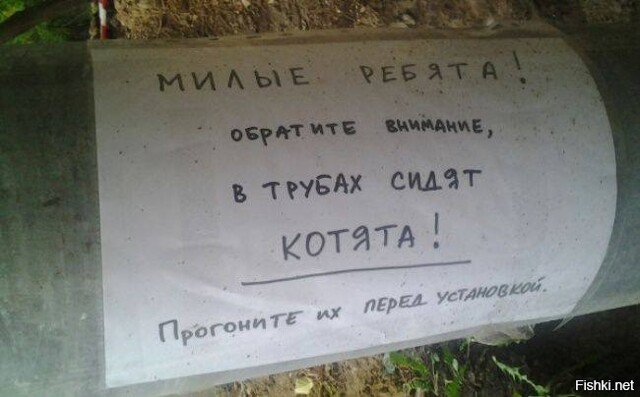 МИЛЫЕ РЕБЯТА!
ОБРАТИТЕ ВНИМАНИЕ,
В ТРУБАХ СИДЯТ
КОТЯТА!
ПРОГОНИТЕ ИХ ПЕРЕД УСТАНОВКОЙ.
Fishki.net